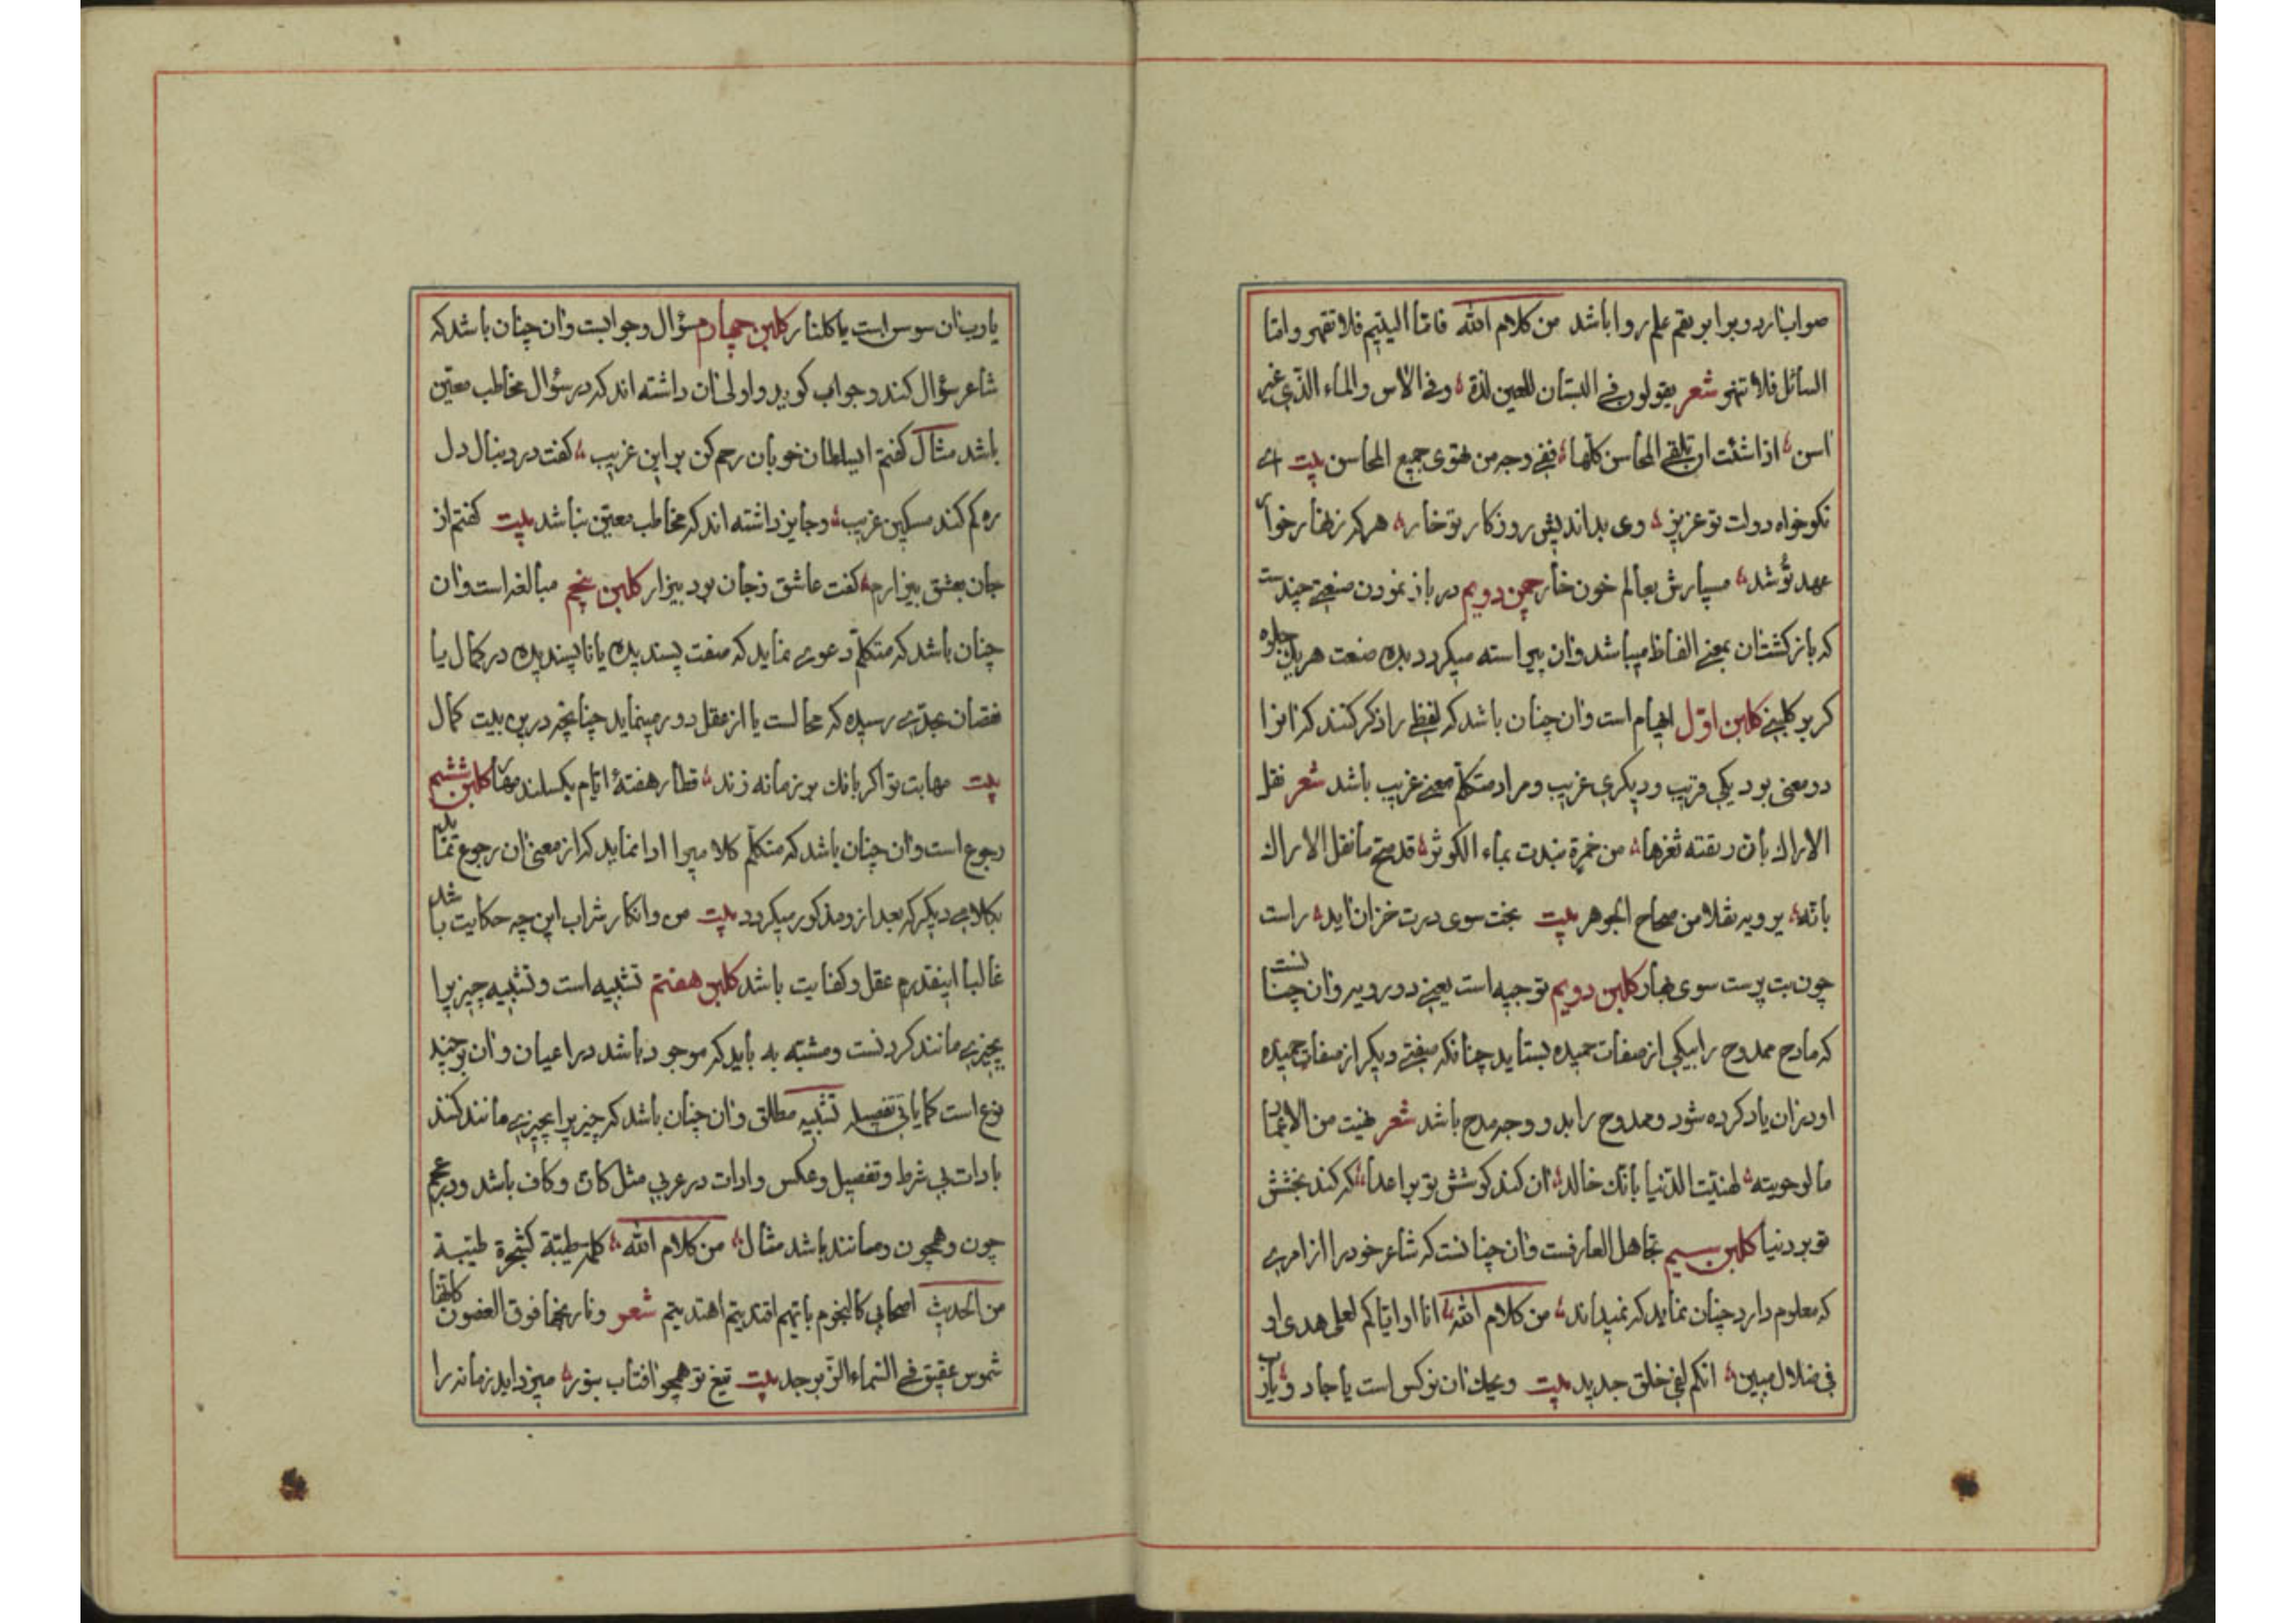 صواب نارد و برابر بقم علم روا باشد من كلام الله فاما اليتيم فلا تقهر و اما
السائل فلا تنهر شعر يقولون في البستان للعين لذة و في الاس والماء الذي غير
اسن اذا شئت ان تلقي المحاسن كلها ففي وجه من تهوى جميع المحاسن بيت اي
نكوخواه دولت تو عزيز وى بدانديش روزكار تو خار هر كه زنهار خوار
عهد تو شد مسپارش بعالم خون خار چمن دويم در باز نمودن صنعتي چندست
كه بازكشتشان بمعني الفاظ ميباشد وان پيراسته ميكردد بده صنعت هر يك جلوه
كر بر كلبني كلبن اول ايهام است وان چنان باشد كه لفظي را ذكر كنند كه انرا
دو معنى بود يكي قريب و ديكري غريب و مراد متكلم معني غريب باشد شعر نقل
الاراك بان ريقته ثغرها من خمرة مزجت بماء الكوثر قد صح ما نقل الاراك
بانه يرويه نقلا من صحاح الجوهر بيت بخت سوى درت خزان آيد راست
چون بت پرست سوى بهار كلبن دويم توجيه است يعني دو رويه وان چنانست
كه مادح ممدوح را بيكي از صفات حميده بستايد چنانكه صفتي ديكر از صفات حميده
او در ان ياد كرده شود و ممدوح را بدو وجه مدح باشد شعر نهبت من الاعمار
ما لو حويته لهنيت الدنيا بانك خالد ان كند كوشش تو بر اعدا كه كند بخشش
تو بر دنيا كلبن سيم تجاهل العارفست وان چنانست كه شاعر خود را از امري
كه معلوم دارد چنان نمايد كه نميداند من كلام الله انا او اياكم لعلى هدى او
في ضلال مبين انكم لفي خلق جديد بيت ويحك ان نركس است يا جادو يارب
يا رب ان سوسن است يا كلنار كلبن چهارم سؤال و جوابست وان چنان باشد كه
شاعر سؤال كند و جواب كويد و اولى ان داشته اند كه در سؤال مخاطب معين
باشد مثال كفتم اى سلطان خوبان رحم كن بر اين غريب كفت در دنبال دل
ره كم كند مسكين غريب و جايز داشته اند كه مخاطب معين نباشد بيت كفتم از
جان بعشق بيزارم كفت عاشق ز جان بود بيزار كلبن پنجم مبالغه است وان
چنان باشد كه متكلم دعوى نمايد كه صفت پسنديده يا ناپسنديده در كمال يا
نقصان بحدي رسيده كه محالست يا از عقل دور مينمايد چنانچه در ين بيت كمال
بيت مهابت تو اكر بانك بر زمانه زند قطار هفتهٔ ايام بكسلند مهار كلبن ششم
رجوع است وان چنان باشد كه متكلم كلاميرا ادا نمايد كه از معنى ان رجوع نمايد
بكلامي ديكر كه بعد از و مذكور ميكردد بيت من و انكار شراب اين چه حكايت باشد
غالبا اينقدرم عقل و كفايت باشد كلبن هفتم تشبيه است و تشبيه چيزيرا
بچيزي مانند كردنست و مشبه به بايد كه موجود باشد در اعيان وان بر چند
نوع است كما ياتي تفصيله تشبيه مطلق وان چنان باشد كه چيزيرا بچيزي مانند كنند
بادات بي شرط و تفصيل و عكس و ادات در عربي مثل كان و كاف باشد و در عجم
چون و همچون و مانند باشد مثال من كلام الله كلمة طيبة كشجرة طيبة
من الحديث اصحابي كالنجوم بايهم اقتديتم اهتديتم شعر و نارنجها فوق الغصون كانها
شموس عقيق في السماء الزبرجد بيت تيغ تو همچو افتاب بنور ميزدايد زمانه را